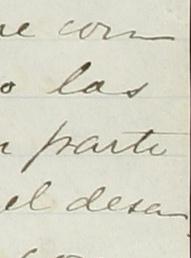 ue com
o las
n parte
el desa